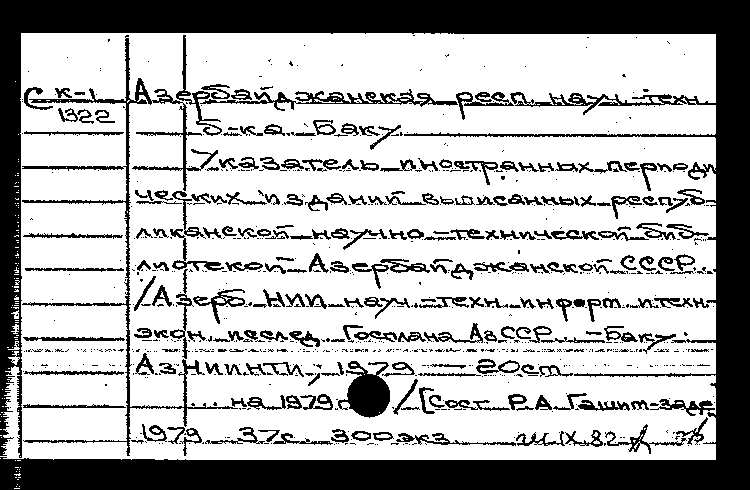 С к-1 Азербайджанская респ. науч.-техн.
1322 б-ка. Баку.
Указатель иностранных периоди
ческих изданий выписанных респуб-
ликанской научно-технической биб-
лиотекой Азербайджанской СССР...
/Азерб. НИИ науч.-техн. информ. и техн-
экон. исслед. Госплана АзССР. -Баку:
АзНИИНТИ, 1979 — 20cm
... на 1979г / [Сост. Р.А. Гашим-заде
1979 37с. 300экз. IX.82